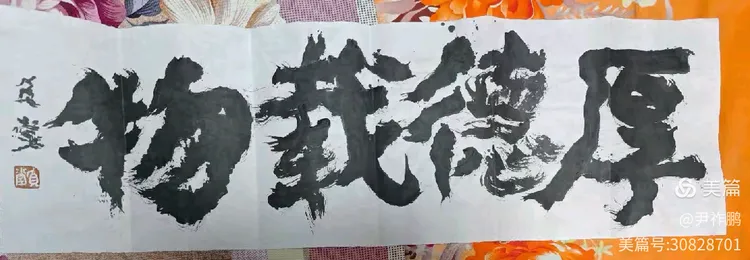 厚德载物
美篇
@尹作鹏
美篇号:30828701